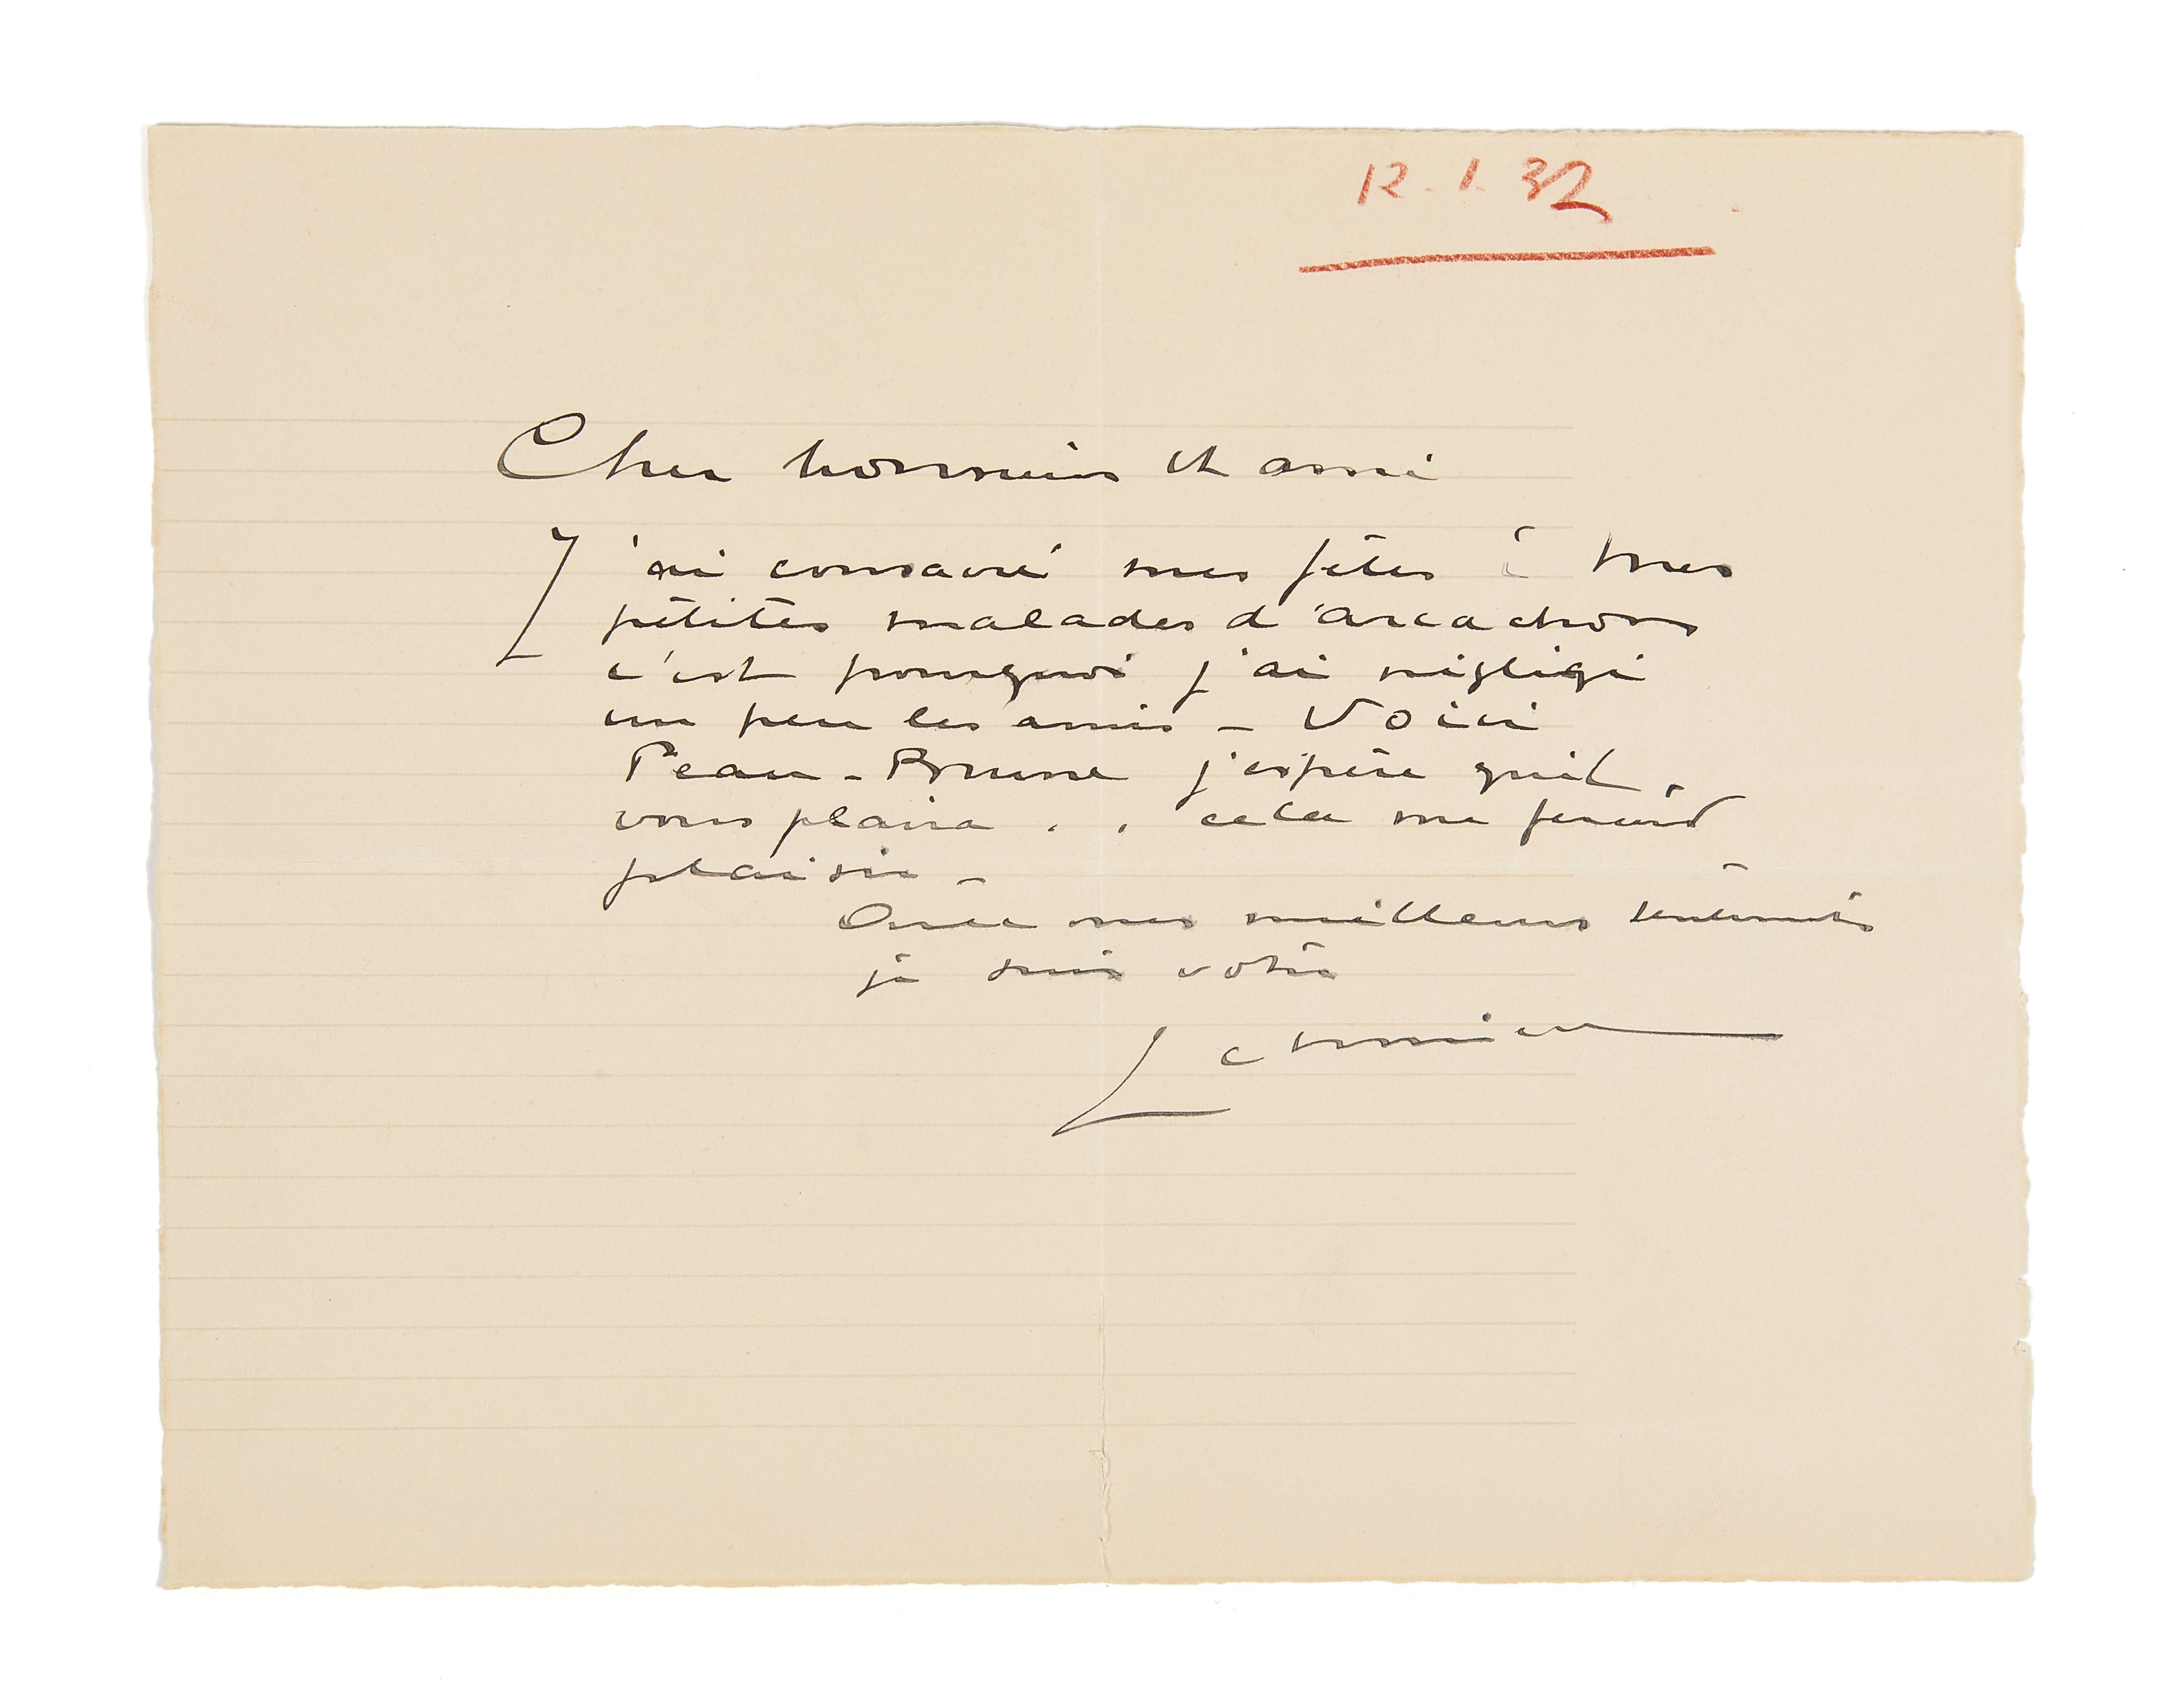 12.1.32
Cher monsieur et ami
J'ai consacré mes fêtes à mes
petites malades d'arcachon
c'est pourquoi j'ai négligé
un peu les amis - Voici
Peau-Brune j'espère qu'il
vous plaira . . cela me ferait
plaisir -
Avec mes meilleurs sentiments
je suis votre